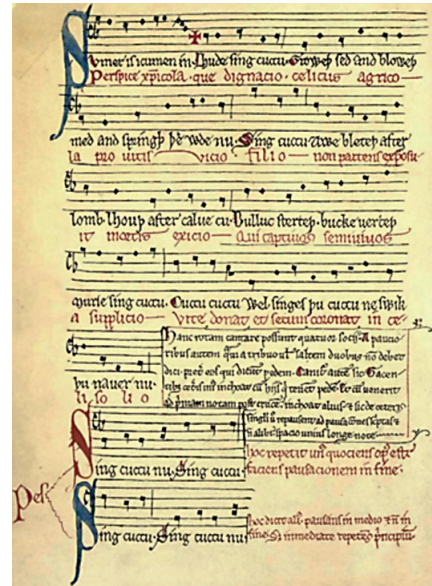 Sumer is icumen in· Lhude sing cuccu· Groweþ sed and bloweþ
Perspice xp̄icola· que dignacio· celicus agrico—
med and springþ þe wde nu· Sing cuccu Awe bleteþ after
la pro uitis vicio filio— non parcens exposu-
lomb lhouþ after calue cu· Bulluc sterteþ· bucke uerteþ
it mortis exicio— Qui captiuos semiuiuos
murie sing cuccu· Cuccu cuccu Wel singes þu cuccu ne swik
a supplicio— Vite donat et secum coronat in ce-
þu nauer nu·
li solio
Hanc rotam cantare possunt quatuor socii· A paucio
ribus autem quam a tribus uel saltem duobus non debet
dici· preter eos qui dicunt pedem· Canitur autem sic· Tacen
tibus ceteris unus inchoat cum hiis qui tenent pedem· et cum uenerit
ad primam notam post crucem· inchoat alius· et sic de ceteris
singuli uero repausent ad pausaciones scriptas et
non alibi· spacio unius longe note·
Pes·
Sing cuccu nu· Sing cuccu·
hoc repetit unus quociens opus est
faciens pausacionem in fine·
Sing cuccu· Sing cuccu nu
hoc dicit alius· pausans in medio et non in
fine· Set immediate repetens principium·